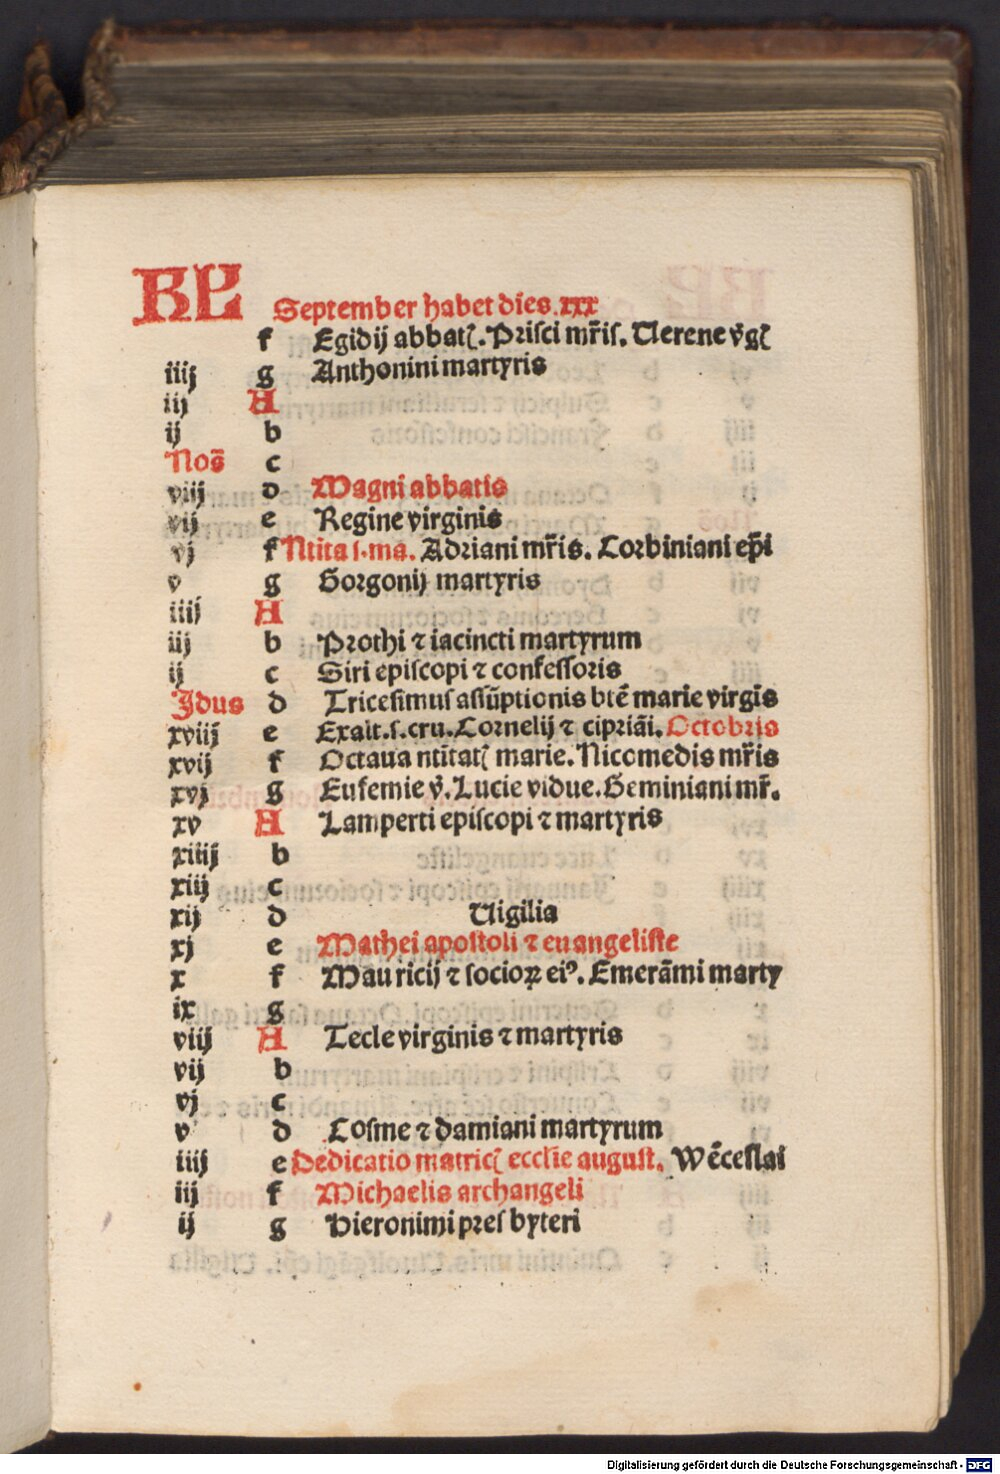 KL September habet dies.xxx
f Egidij abbatꝭ. Prisci mr̃is. Uerene v̓gꝭ
iiij g Anthonini martyris
iij A
ij b
Noñ c
viij d Magni abbatis
vij e Regine virginis
vj f Ntita s. ma. Adriani mr̃is. Corbiniani ep̃i
v g Gorgonij martyris
iiij A
iij b Prothi ⁊ iacincti martyrum
ij c Siri episcopi ⁊ confessoris
Jdus d Tricesimus assũptionis btẽ marie virgis
xviij e Exalt.s.cru. Cornelij ⁊ cipriãi. Octobris
xvij f Octaua ntitatꝭ marie. Nicomedis mr̃is
xvj g Eufemie v̓. Lucie vidue. Geminiani mr̃.
xv A Lamperti episcopi ⁊ martyris
xiiij b
xiij c
xij d Uigilia
xj e Mathei apostoli ⁊ euangeliste
x f Mauricij ⁊ socioꝝ eiꝰ. Emerãmi marty
ix g
viij A Tecle virginis ⁊ martyris
vij b
vj c
v d Cosme ⁊ damiani martyrum
iiij e Dedicatio matricꝭ ecclie august. Wẽceslai
iij f Michaelis archangeli
ij g Hieronimi presbyteri
Digitalisierung gefördert durch die Deutsche Forschungsgemeinschaft - DFG